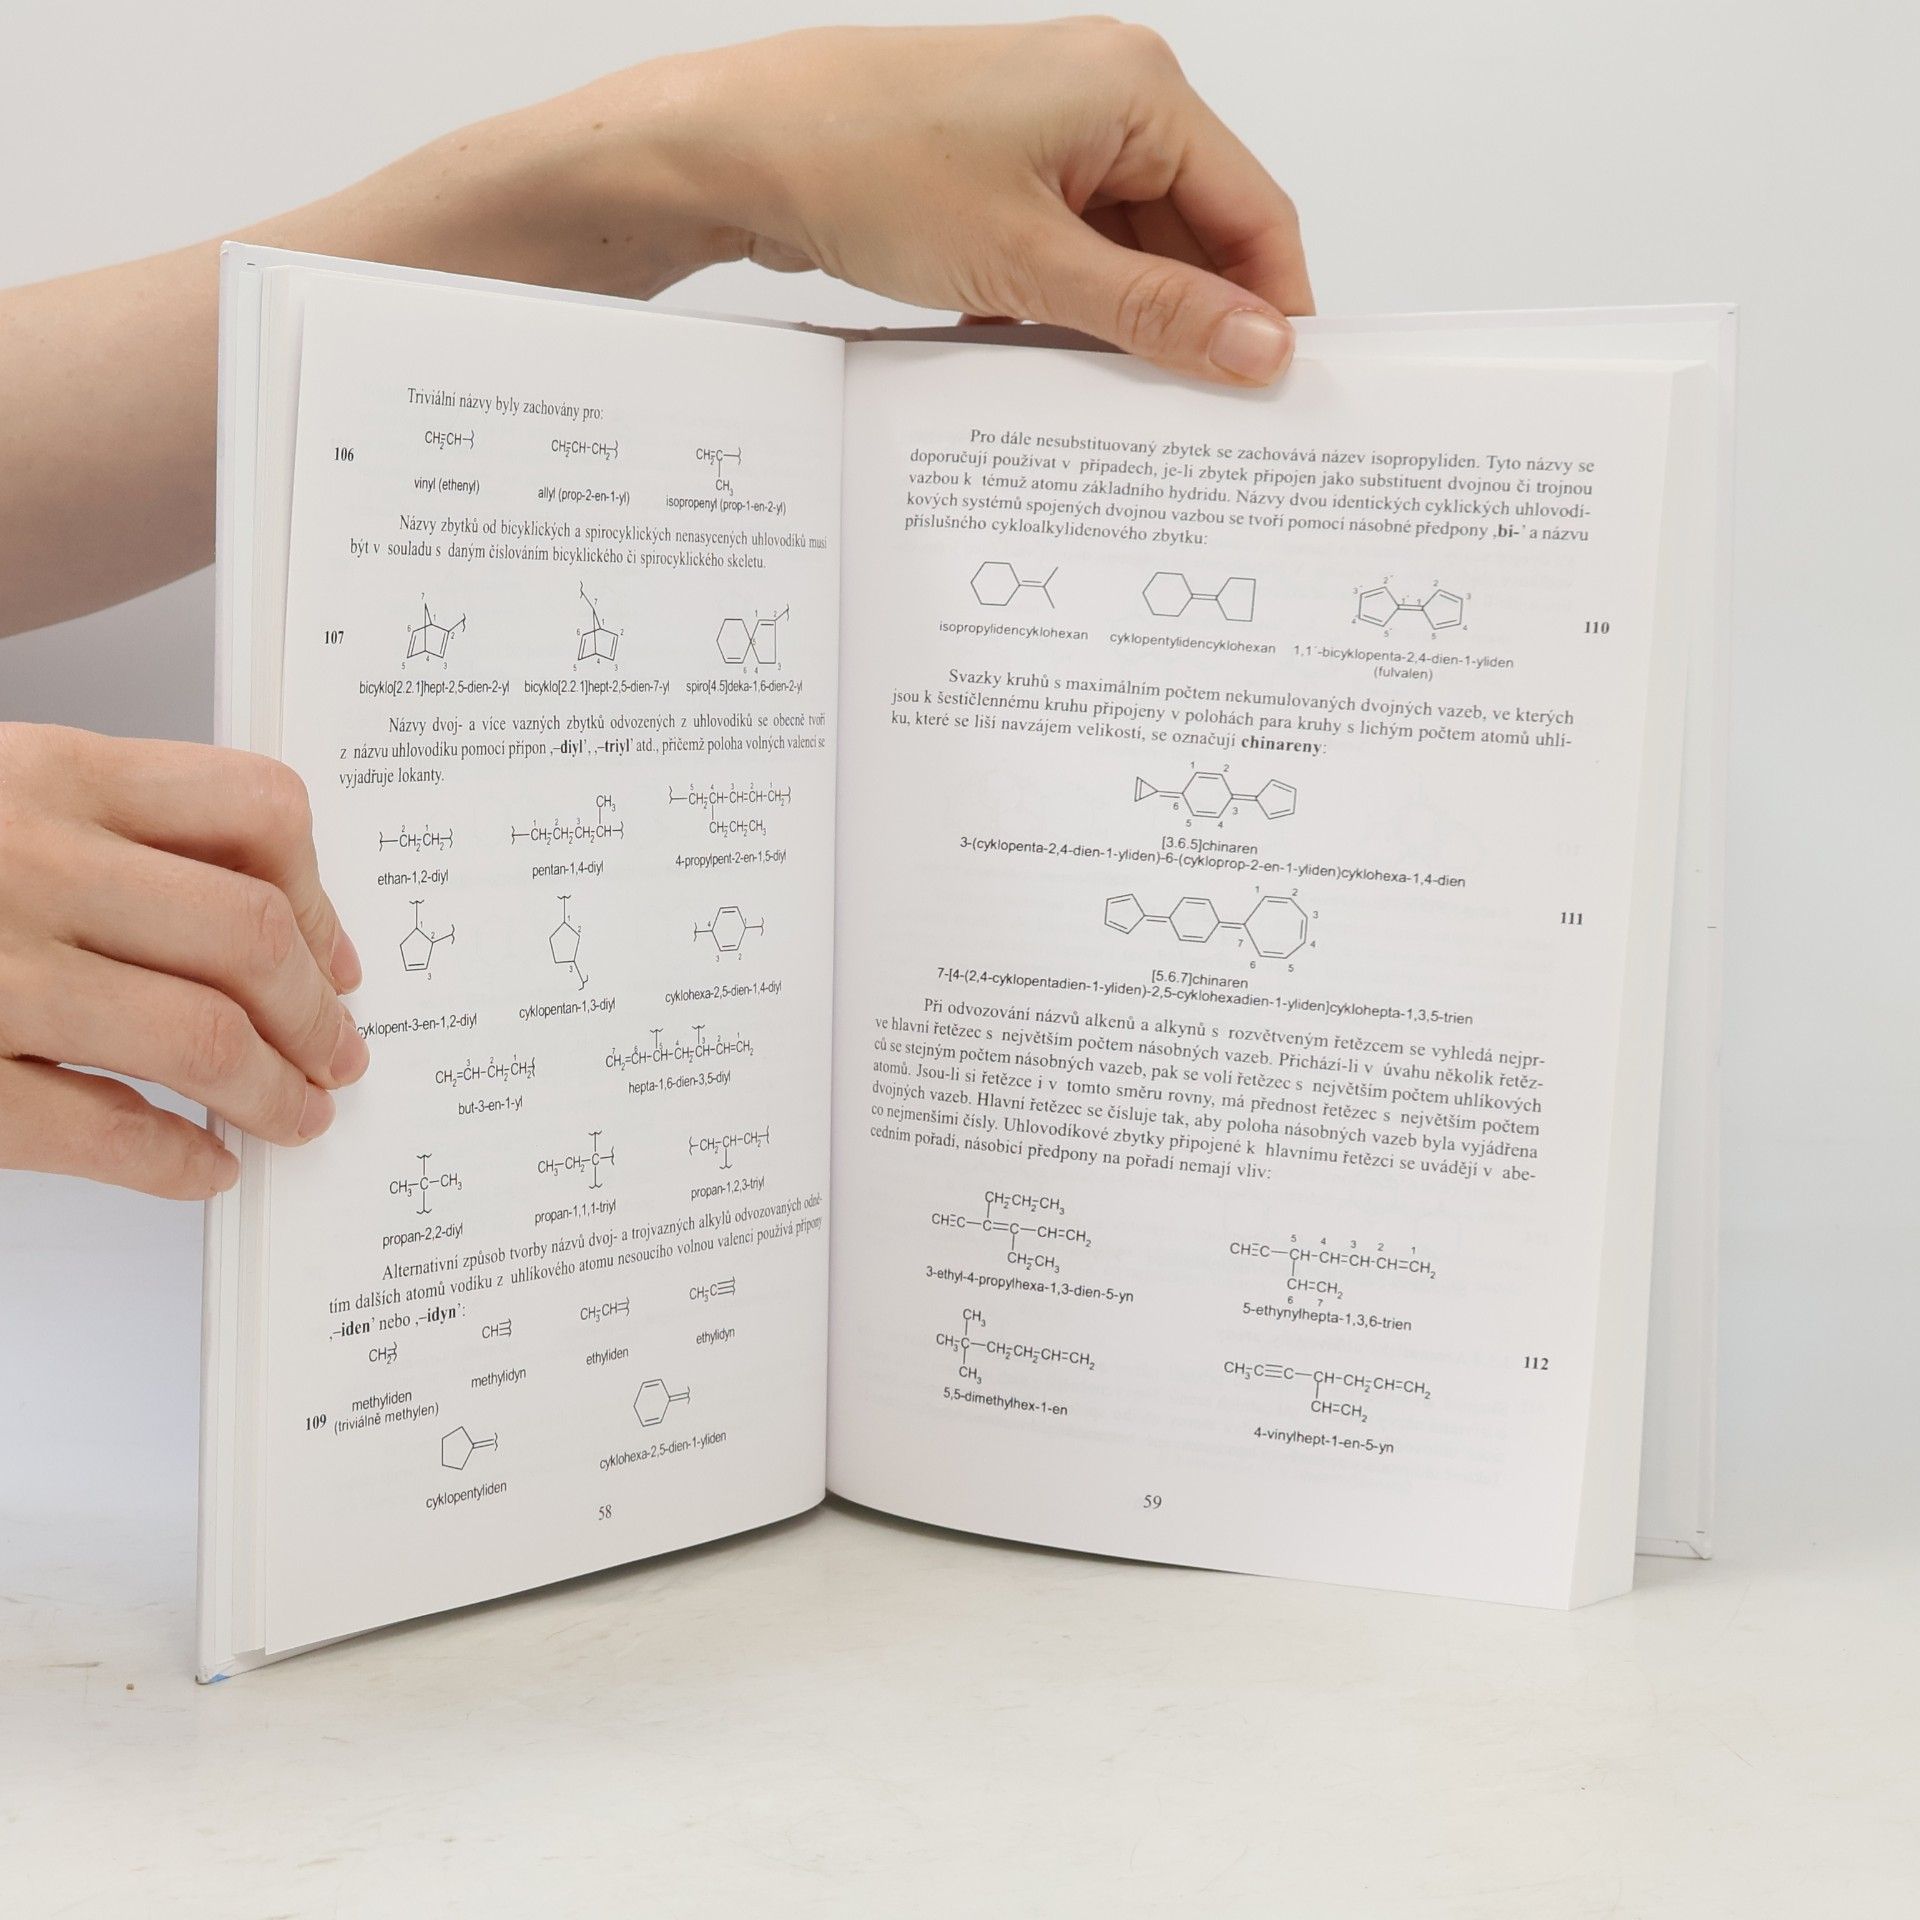 Triviální názvy byly zachovány pro:
106
CH2=CH–
CH2=CH-CH2–
CH2=C–
CH3
vinyl (ethenyl)
allyl (prop-2-en-1-yl)
isopropenyl (prop-1-en-2-yl)
Názvy zbytků od bicyklických a spirocyklických nenasycených uhlovodíků musí
být v souladu s daným číslováním bicyklického či spirocyklického skeletu.
107
bicyklo[2.2.1]hept-2,5-dien-2-yl
bicyklo[2.2.1]hept-2,5-dien-7-yl
spiro[4.5]deka-1,6-dien-2-yl
Názvy dvoj- a více vazných zbytků odvozených z uhlovodíků se obecně tvoří
z názvu uhlovodíku pomocí přípon ‚–diyl’, ‚–triyl’ atd., přičemž poloha volných valencí se
vyjadřuje lokanty.
–CH2-CH2–
CH3
–CH2-CH2-CH2-CH–
–CH2-CH-CH=CH-CH2–
CH2CH2CH3
ethan-1,2-diyl
pentan-1,4-diyl
4-propylpent-2-en-1,5-diyl
cyklopent-3-en-1,2-diyl
cyklopentan-1,3-diyl
cyklohexa-2,5-dien-1,4-diyl
CH2=CH-CH2-CH2
CH2=CH-CH-CH2-CH-CH=CH2
but-3-en-1-yl
hepta-1,6-dien-3,5-diyl
CH3-C-CH3
CH3-CH2-C
CH2-CH-CH2
propan-2,2-diyl
propan-1,1,1-triyl
propan-1,2,3-triyl
Alternativní způsob tvorby názvů dvoj- a trojvazných alkylů odvozovaných odně-
tím dalších atomů vodíku z uhlíkového atomu nesoucího volnou valenci používá přípony
‚–iden’ nebo ‚–idyn’:
CH2=
CH≡
CH3-CH=
CH3-C≡
methyliden
(triviálně methylen)
methylidyn
ethyliden
ethylidyn
109
cyklopentyliden
cyklohexa-2,5-dien-1-yliden
58
Pro dále nesubstituovaný zbytek se zachovává název isopropyliden. Tyto názvy se
doporučují používat v případech, je-li zbytek připojen jako substituent dvojnou či trojnou
vazbou k témuž atomu základního hydridu. Názvy dvou identických cyklických uhlovodí-
kových systémů spojených dvojnou vazbou se tvoří pomocí násobné předpony ‚bi-’ a názvu
příslušného cykloalkylidenového zbytku:
isopropylidencyklohexan
cyklopentylidencyklohexan
1,1´-bicyklopenta-2,4-dien-1-yliden
(fulvalen)
110
Svazky kruhů s maximálním počtem nekumulovaných dvojných vazeb, ve kterých
jsou k šestičlennému kruhu připojeny v polohách para kruhy s lichým počtem atomů uhlí-
ku, které se liší navzájem velikostí, se označují chinareny:
[3.6.5]chinaren
3-(cyklopenta-2,4-dien-1-yliden)-6-(cykloprop-2-en-1-yliden)cyklohexa-1,4-dien
111
[5.6.7]chinaren
7-[4-(2,4-cyklopentadien-1-yliden)-2,5-cyklohexadien-1-yliden]cyklohepta-1,3,5-trien
Při odvozování názvů alkenů a alkynů s rozvětveným řetězcem se vyhledá nejpr-
ve hlavní řetězec s největším počtem násobných vazeb. Přichází-li v úvahu několik řetěz-
ců se stejným počtem násobných vazeb, pak se volí řetězec s největším počtem uhlíkových
atomů. Jsou-li si řetězce i v tomto směru rovny, má přednost řetězec s největším počtem
dvojných vazeb. Hlavní řetězec se čísluje tak, aby poloha násobných vazeb byla vyjádřena
co nejmenšími čísly. Uhlovodíkové zbytky připojené k hlavnímu řetězci se uvádějí v abe-
cedním pořadí, násobicí předpony na pořadí nemají vliv:
CH2-CH2-CH3
CH≡C–C=C–CH=CH2
CH2-CH3
3-ethyl-4-propylhexa-1,3-dien-5-yn
5 4 3 2 1
CH≡C–CH-CH=CH-CH=CH2
CH=CH2
6 7
5-ethynylhepta-1,3,6-trien
CH3
CH3-C–CH2-CH2-CH=CH2
CH3
5,5-dimethylhex-1-en
112
CH3-C≡C–CH-CH2-CH=CH2
CH=CH2
4-vinylhept-1-en-5-yn
59